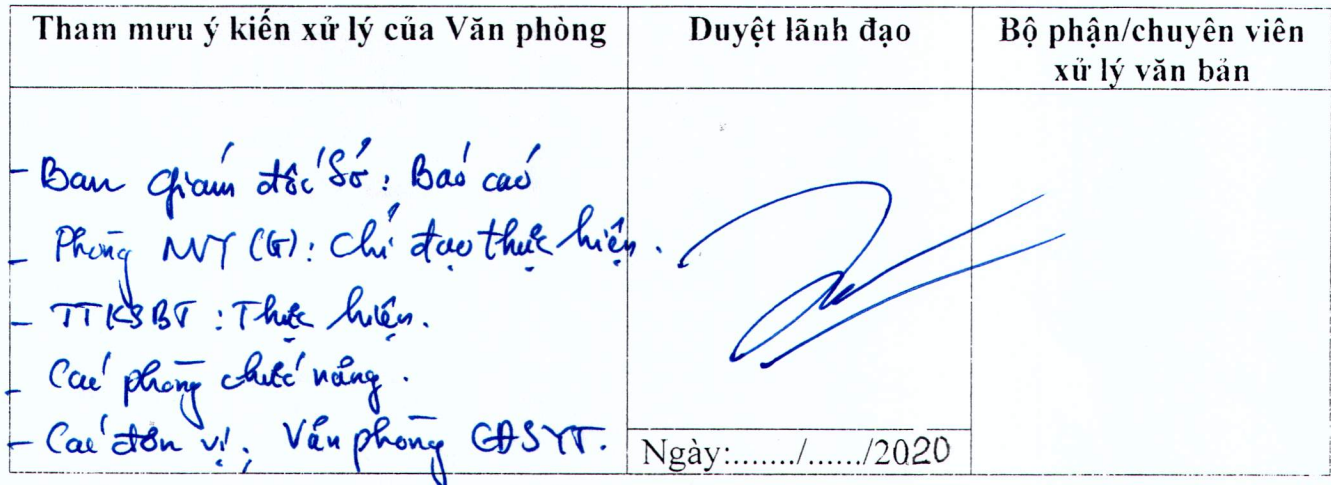 Tham mưu ý kiến xử lý của Văn phòng
Duyệt lãnh đạo
Bộ phận/chuyên viên
xử lý văn bản
- Ban Giám đốc Sở: Báo cáo
- Phòng NVY (G): Chỉ đạo thực hiện.
- TTKSBT: Thực hiện.
- Các phòng chức năng.
- Các đơn vị; Văn phòng CĐSYT.
Ngày:......./....../2020